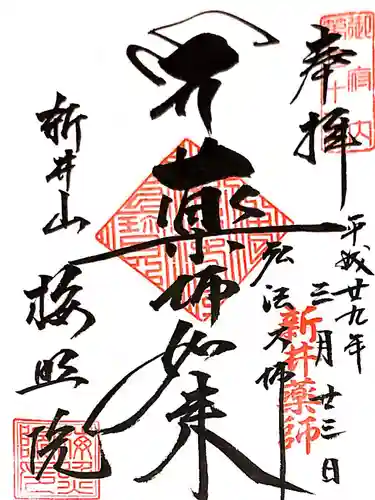 奉拝
平成廿九年
三月廿三日
新井薬師
弘法大師
薬師如来
新井山
梅照院